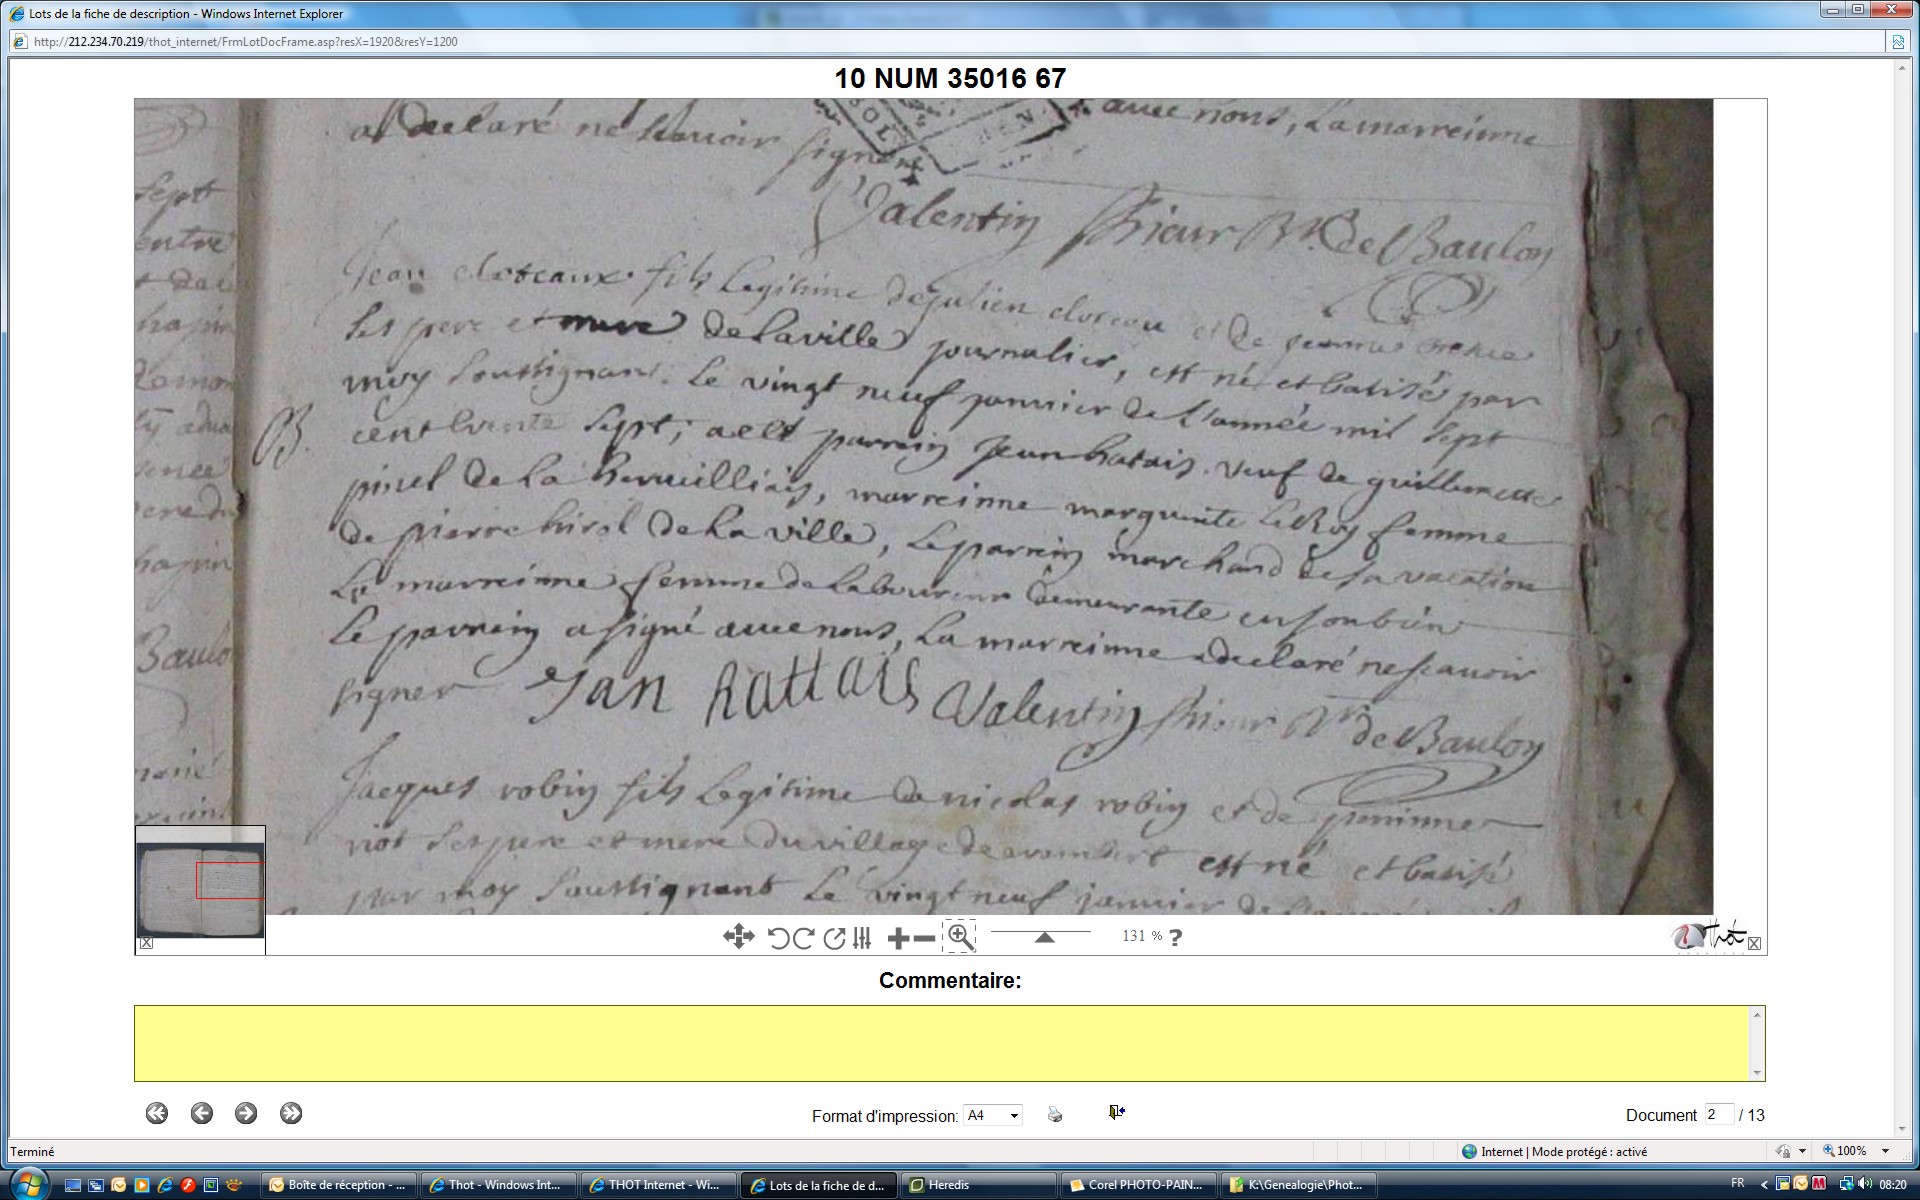 Lots de la fiche de description - Windows Internet Explorer
http://212.234.70.219/thot_internet/FrmLotDocFrame.asp?resX=1920&resY=1200
10 NUM 35016 67
avec nous, La marreinne
a declaré ne scavoir signer
Valentin prieur Rr. de Baulon
Jean cloteaux fils Legitime de julien cloteau et de jeanne
ses pere et mere de la ville journalier, est né et batisé par
moy soussignant. Le vingt neuf janvier de l'année mil sept
B. cent trente sept; a esté parrein jean hatais veuf de guillemette
pinel de la herveilliais, marreinne marguerite LeRoy femme
de pierre hirel de la ville, Le parrein marchand de sa vacation
La marreinne femme de Laboureur demeurante en son bien
Le parrein a signé avec nous, La marreinne a declaré ne scavoir
signer Jan hattais Valentin prieur Rr de Baulon
Jacques robin fils Legitime de nicolas robin et de perinne
riot ses pere et mere du village de est né et batisé
par moy soussignant Le vingt neuf janvier de
131 % ?
Thot
Commentaire:
Format d'impression: A4
Document 2 / 13
Terminé
Internet | Mode protégé : activé
100%
Boîte de réception - ...
Thot - Windows Int...
THOT Internet - Wi...
Lots de la fiche de d...
Heredis
Corel PHOTO-PAIN...
K:\Genealogie\Phot...
FR
08:20